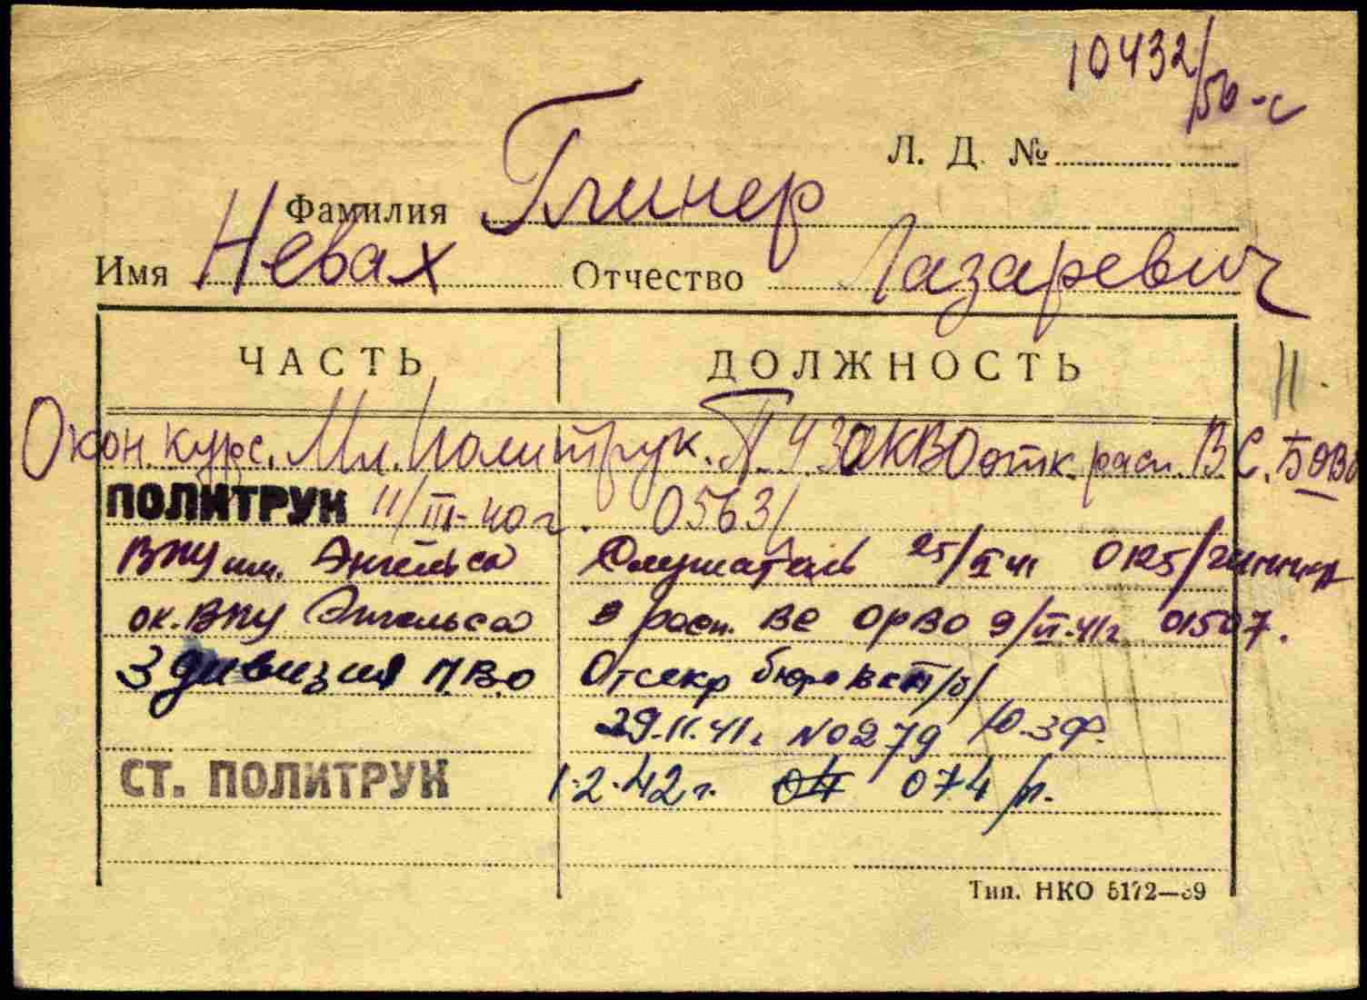 10432/50-с
Л. Д. №
Фамилия Глинер
Имя Невах Отчество Лазаревич
ЧАСТЬ ДОЛЖНОСТЬ
11.
Окон. курс. Мл. Политрук. П.У ЗакВО отк. расп. В.С. БОВО
ПОЛИТРУК 11/III-40 г. 0563/
ВПУ им. Энгельса Слушатель 25/I 41 0125/
ок. ВПУ Энгельса в расп. ВС ОРВО 9/VI-41г 01507.
3 дивизия ПВО Отсекр бюро
29.11.41г. №0279 Ю.З.Ф.
СТ. ПОЛИТРУК 1.2.42 г. 074/п.
Тип. НКО 5172—39